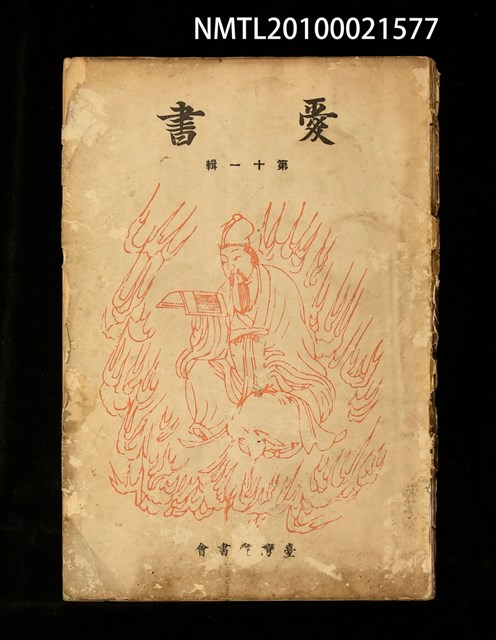 NMTL20100021577
愛書
第十一輯
臺灣愛書會